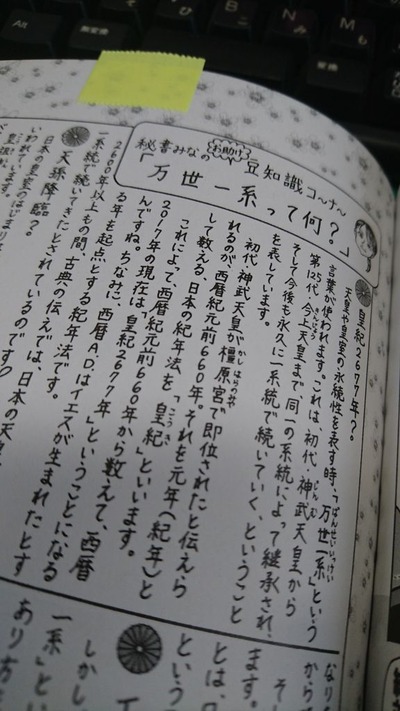 秘書みなの お助け 豆知識コ～ナ～
「万世一系って何？」
皇紀2677年？。
天皇や皇室の永続性を表す時、「万世一系」という
ばんせいいっけい
言葉が使われます。これは、初代・神武天皇から
じんむ
第125代・今上天皇まで、同一の系統によって継承され、
きんじょう
そして今後も永久に一系統で続いていく、ということ
を表しています。
初代 神武天皇が橿原宮で即位されたと伝えら
かしはらのみや
れるのが西暦紀元前660年。それを元年（紀年）と
して数える、日本の紀年法を「皇紀」といいます。
こうき
これによって、西暦紀元前660年から数えて、西暦
2017年の現在は「皇紀2677年」ということになる
んですね。ちなみに、西暦A.D.はイエスが生まれたとす
る年を起点とする紀年法です。
2600年以上もの間、古典の伝えでは、日本の天皇、
一系統で続いてきたとされているのです？
天孫降臨？。
日本の皇室のはじまり
いわれています。
なり
から
そ
ます。
とは、
という
しかし、
一系」とい
あり方